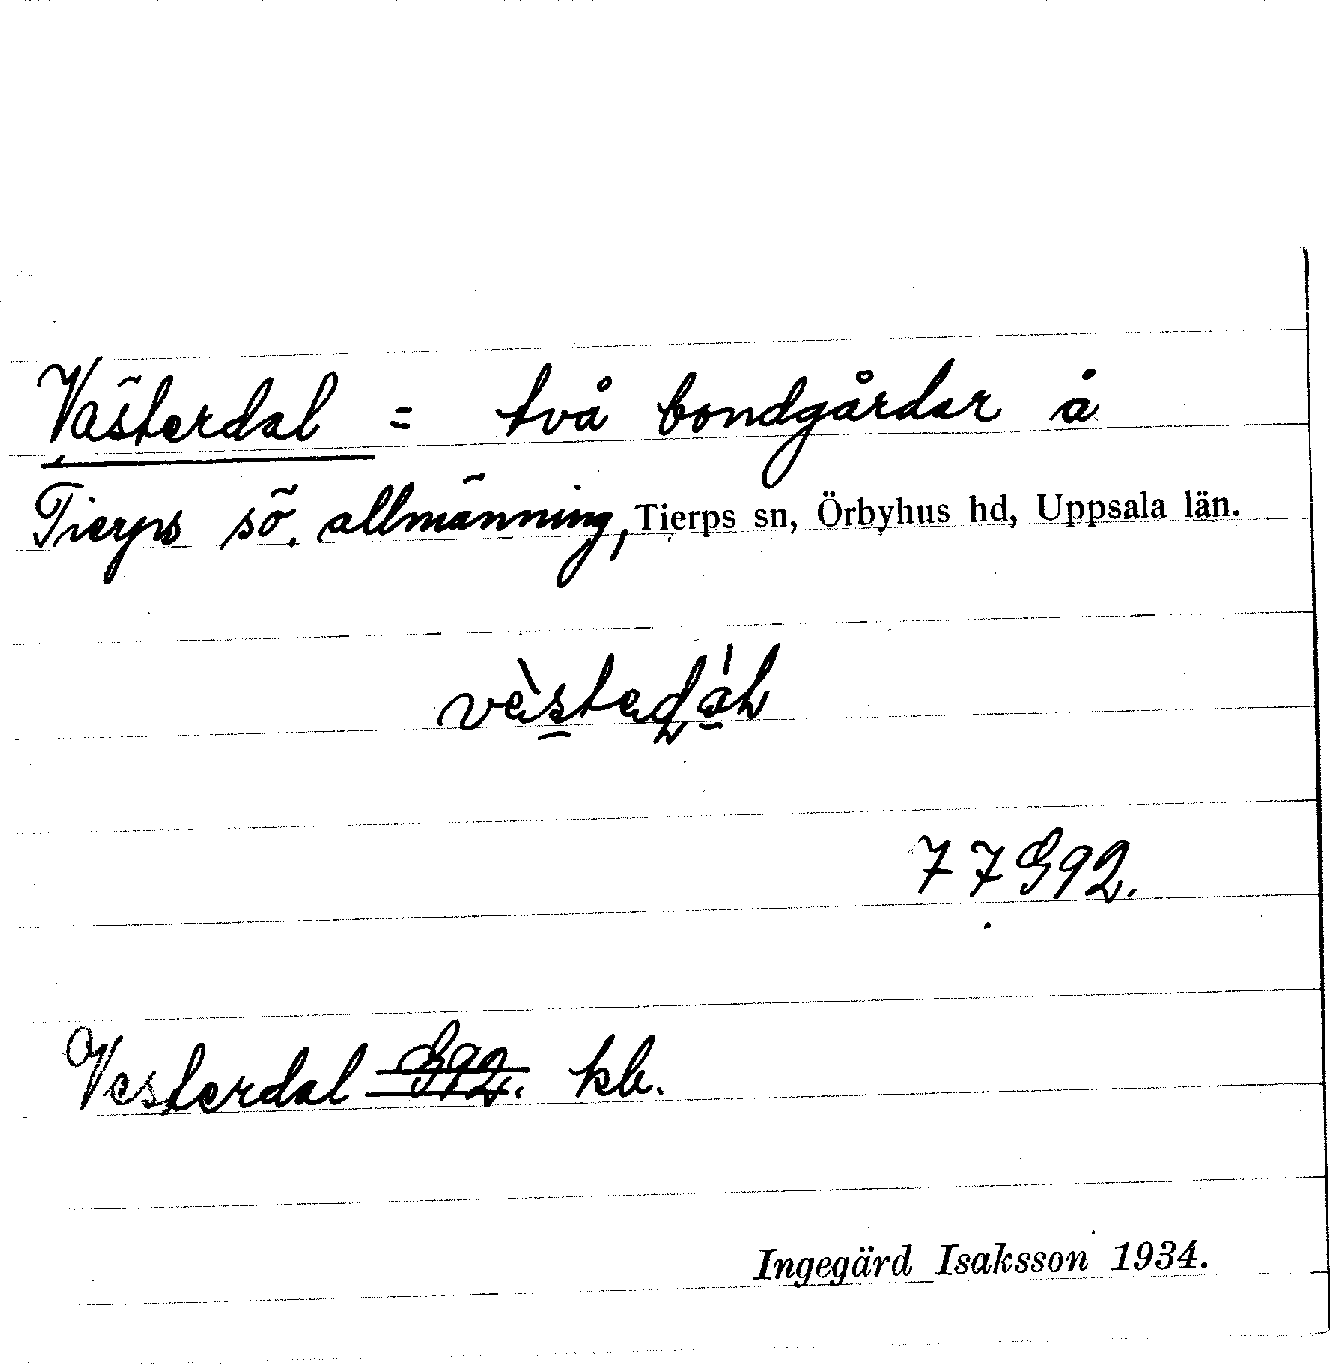 Västerdal = två bondgårdar å
Tierps sö. allmänning, Tierps sn, Örbyhus hd, Uppsala län.
77 G92.
Vesterdal G92. kb.
Ingegärd Isaksson 1934.